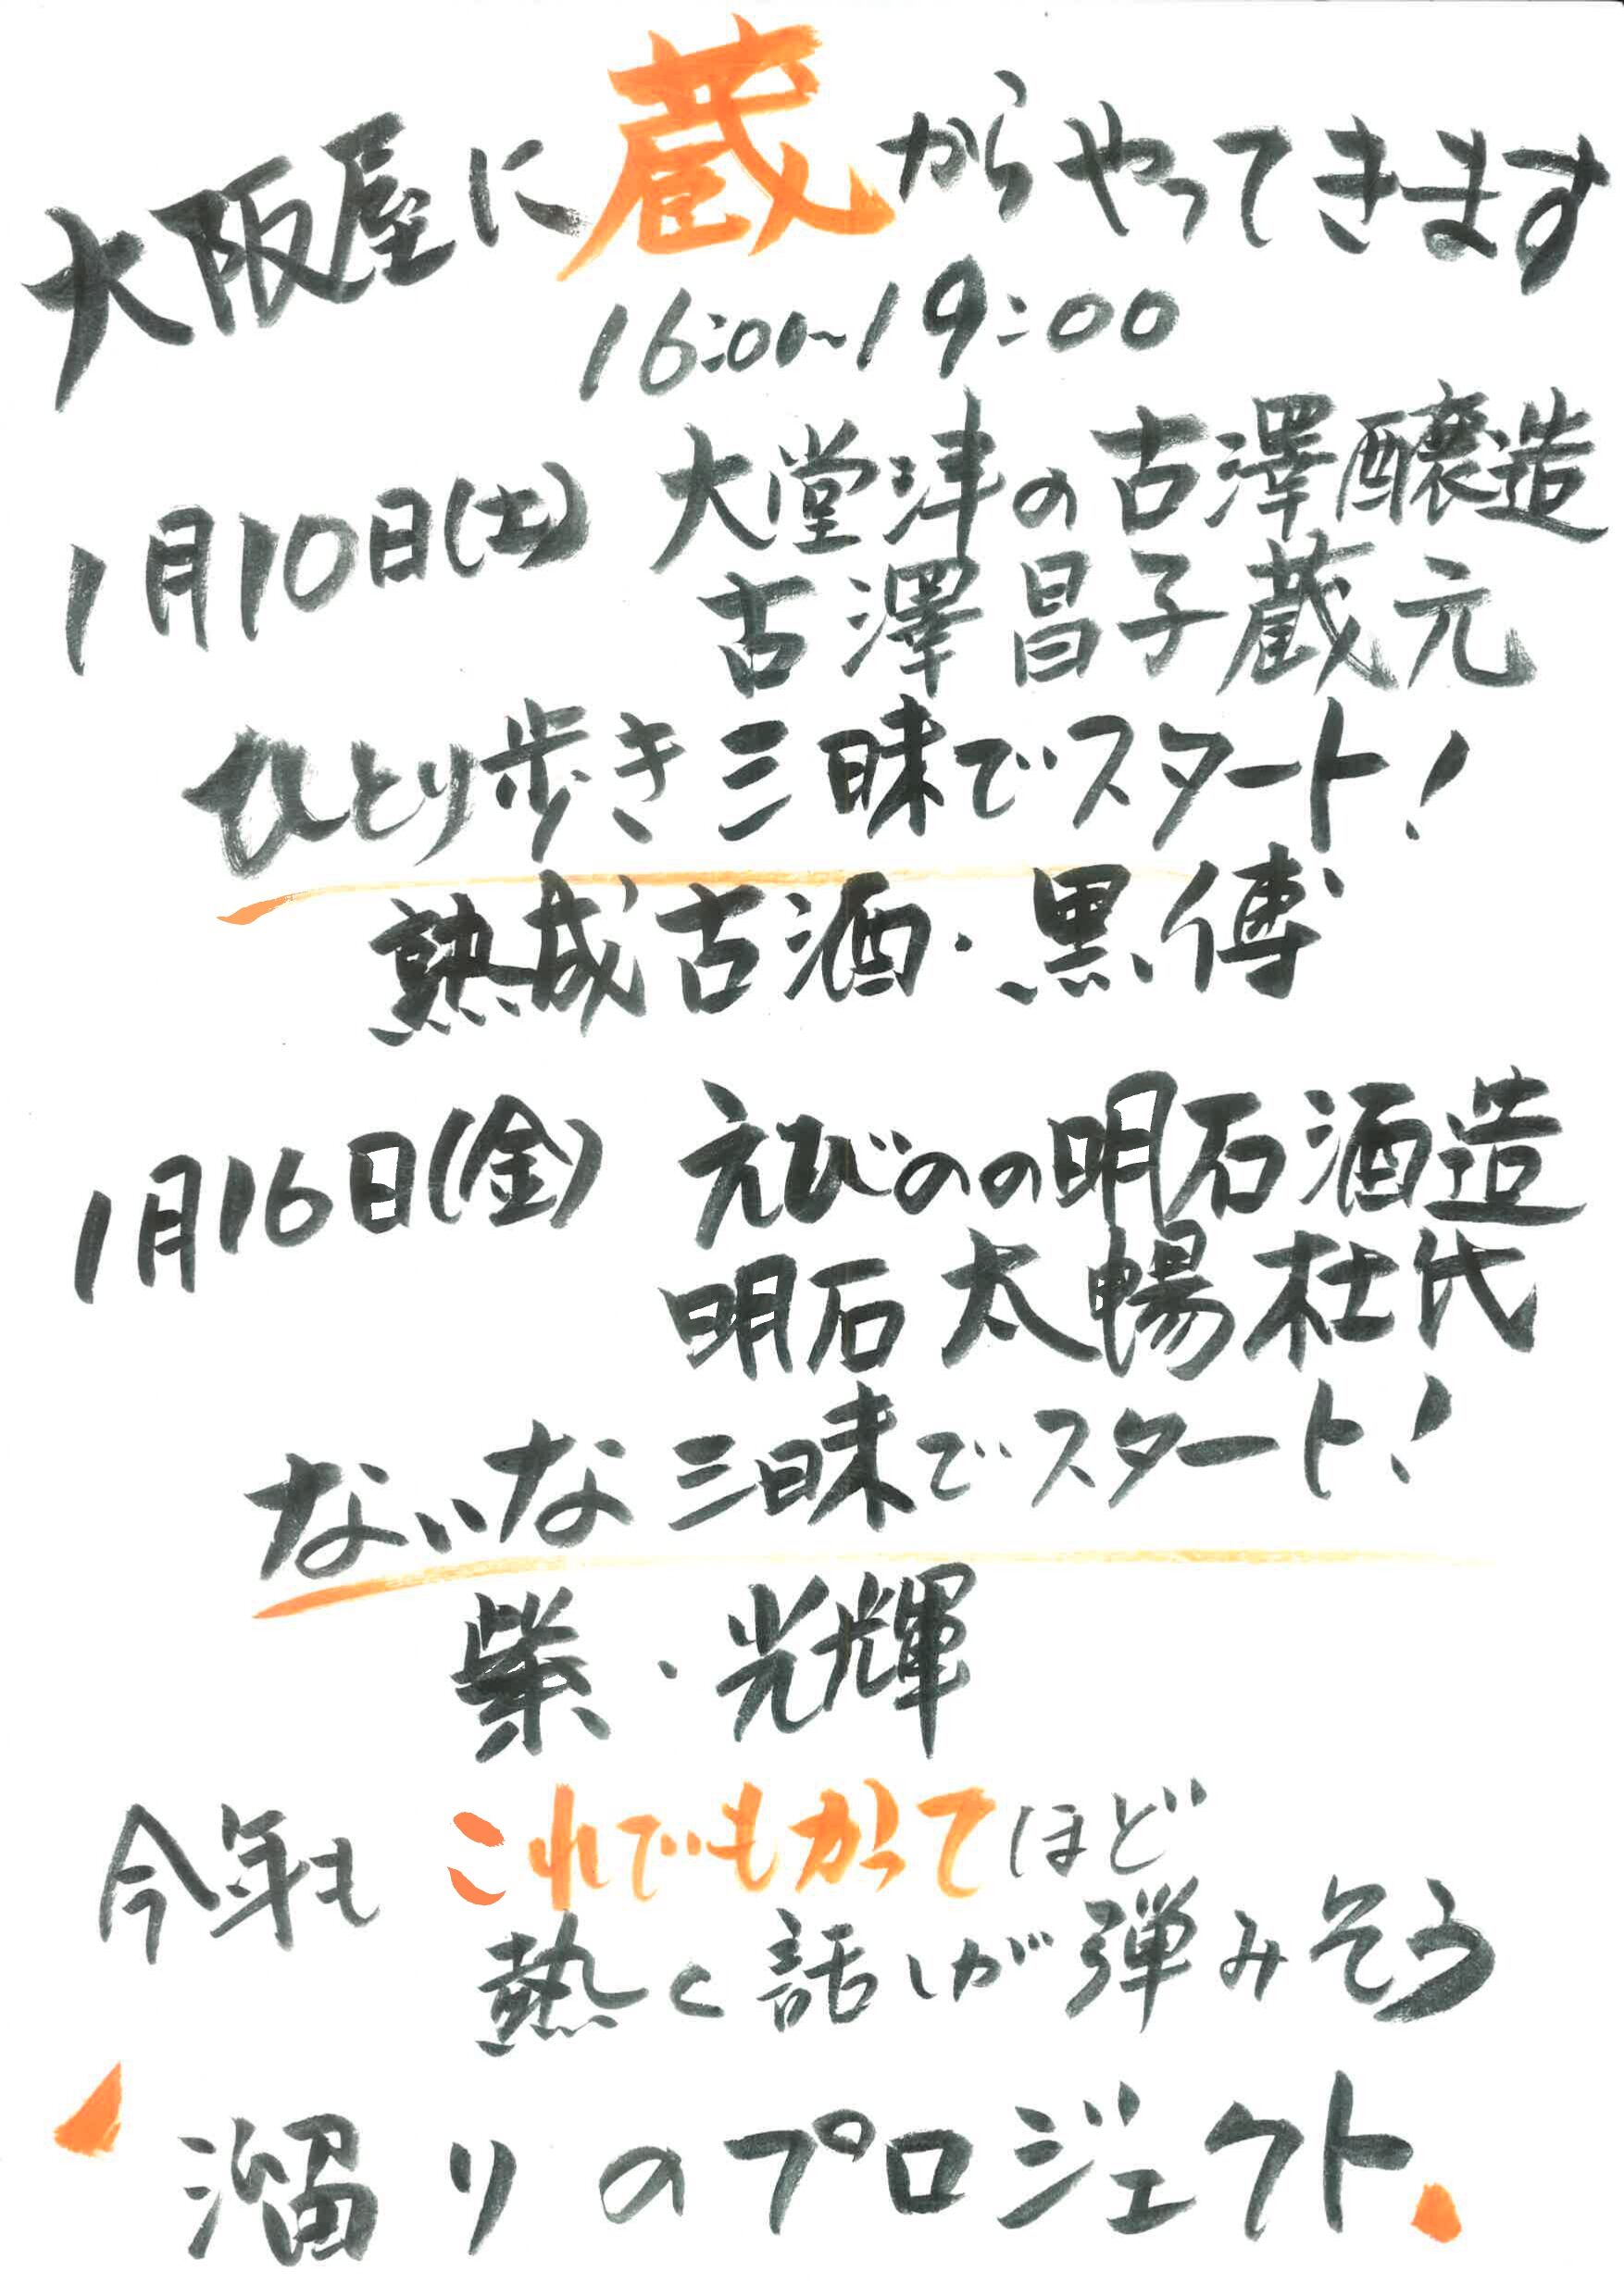 大阪屋に蔵からやってきます
16:00~19:00
1月10日(土) 大堂津の古澤醸造
古澤昌子蔵元
ひとり歩き三昧でスタート!
熟成古酒・黒傳
1月16日(金) えびのの明石酒造
明石太暢杜氏
ないな三昧でスタート!
柴・光輝
今年もこれでもかってほど
熱く話しが弾みそう
溜りのプロジェクト